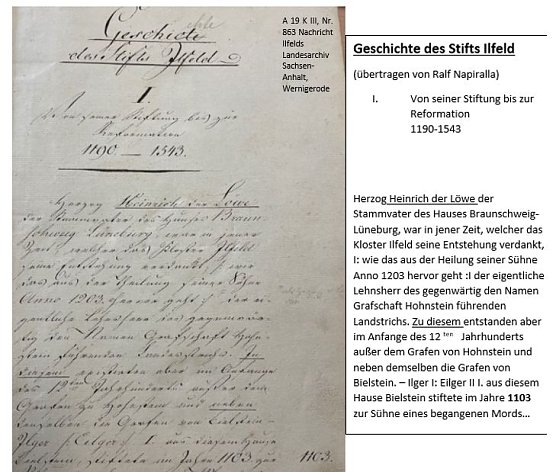 Geschichte
des Stifts Ilfeld
I.
Von seiner Stiftung bis zur
Reformation
1190 — 1543.
Herzog Heinrich der Löwe
der Stammvater des Hauses Braun-
schweig Lüneburg, war in jener
Zeit, welcher das Kloster Ilfeld
seine Entstehung verdankt, (: wie
das aus der Theilung seiner Söhne
Anno 1203. hervor geht :) der ei-
gentliche Lehnsherr des gegenwär-
tig den Namen Grafschaft Hohn-
stein führenden Landstrichs. In
diesem existirten aber im Anfange
des 12ten Jahrhunderts außer dem
Grafen zu Hohnstein und neben
denselben die Grafen von Bielstein –
Ilger (: Eilger :) I. aus diesem Hause
Bielstein, stiftete im Jahre 1103 zur 1103.
A 19 K III, Nr.
863 Nachricht
Ilfelds
Landesarchiv
Sachsen-
Anhalt,
Wernigerode
Geschichte des Stifts Ilfeld
(übertragen von Ralf Napiralla)
I. Von seiner Stiftung bis zur
Reformation
1190-1543
Herzog Heinrich der Löwe der
Stammvater des Hauses Braunschweig-
Lüneburg, war in jener Zeit, welcher das
Kloster Ilfeld seine Entstehung verdankt,
I: wie das aus der Heilung seiner Sühne
Anno 1203 hervor geht :I der eigentliche
Lehnsherr des gegenwärtig den Namen
Grafschaft Hohnstein führenden
Landstrichs. Zu diesem entstanden aber
im Anfange des 12 ten Jahrhunderts
außer dem Grafen von Hohnstein und
neben demselben die Grafen von
Bielstein. – Ilger I: Eilger II I. aus diesem
Hause Bielstein stiftete im Jahre 1103
zur Sühne eines begangenen Mords...